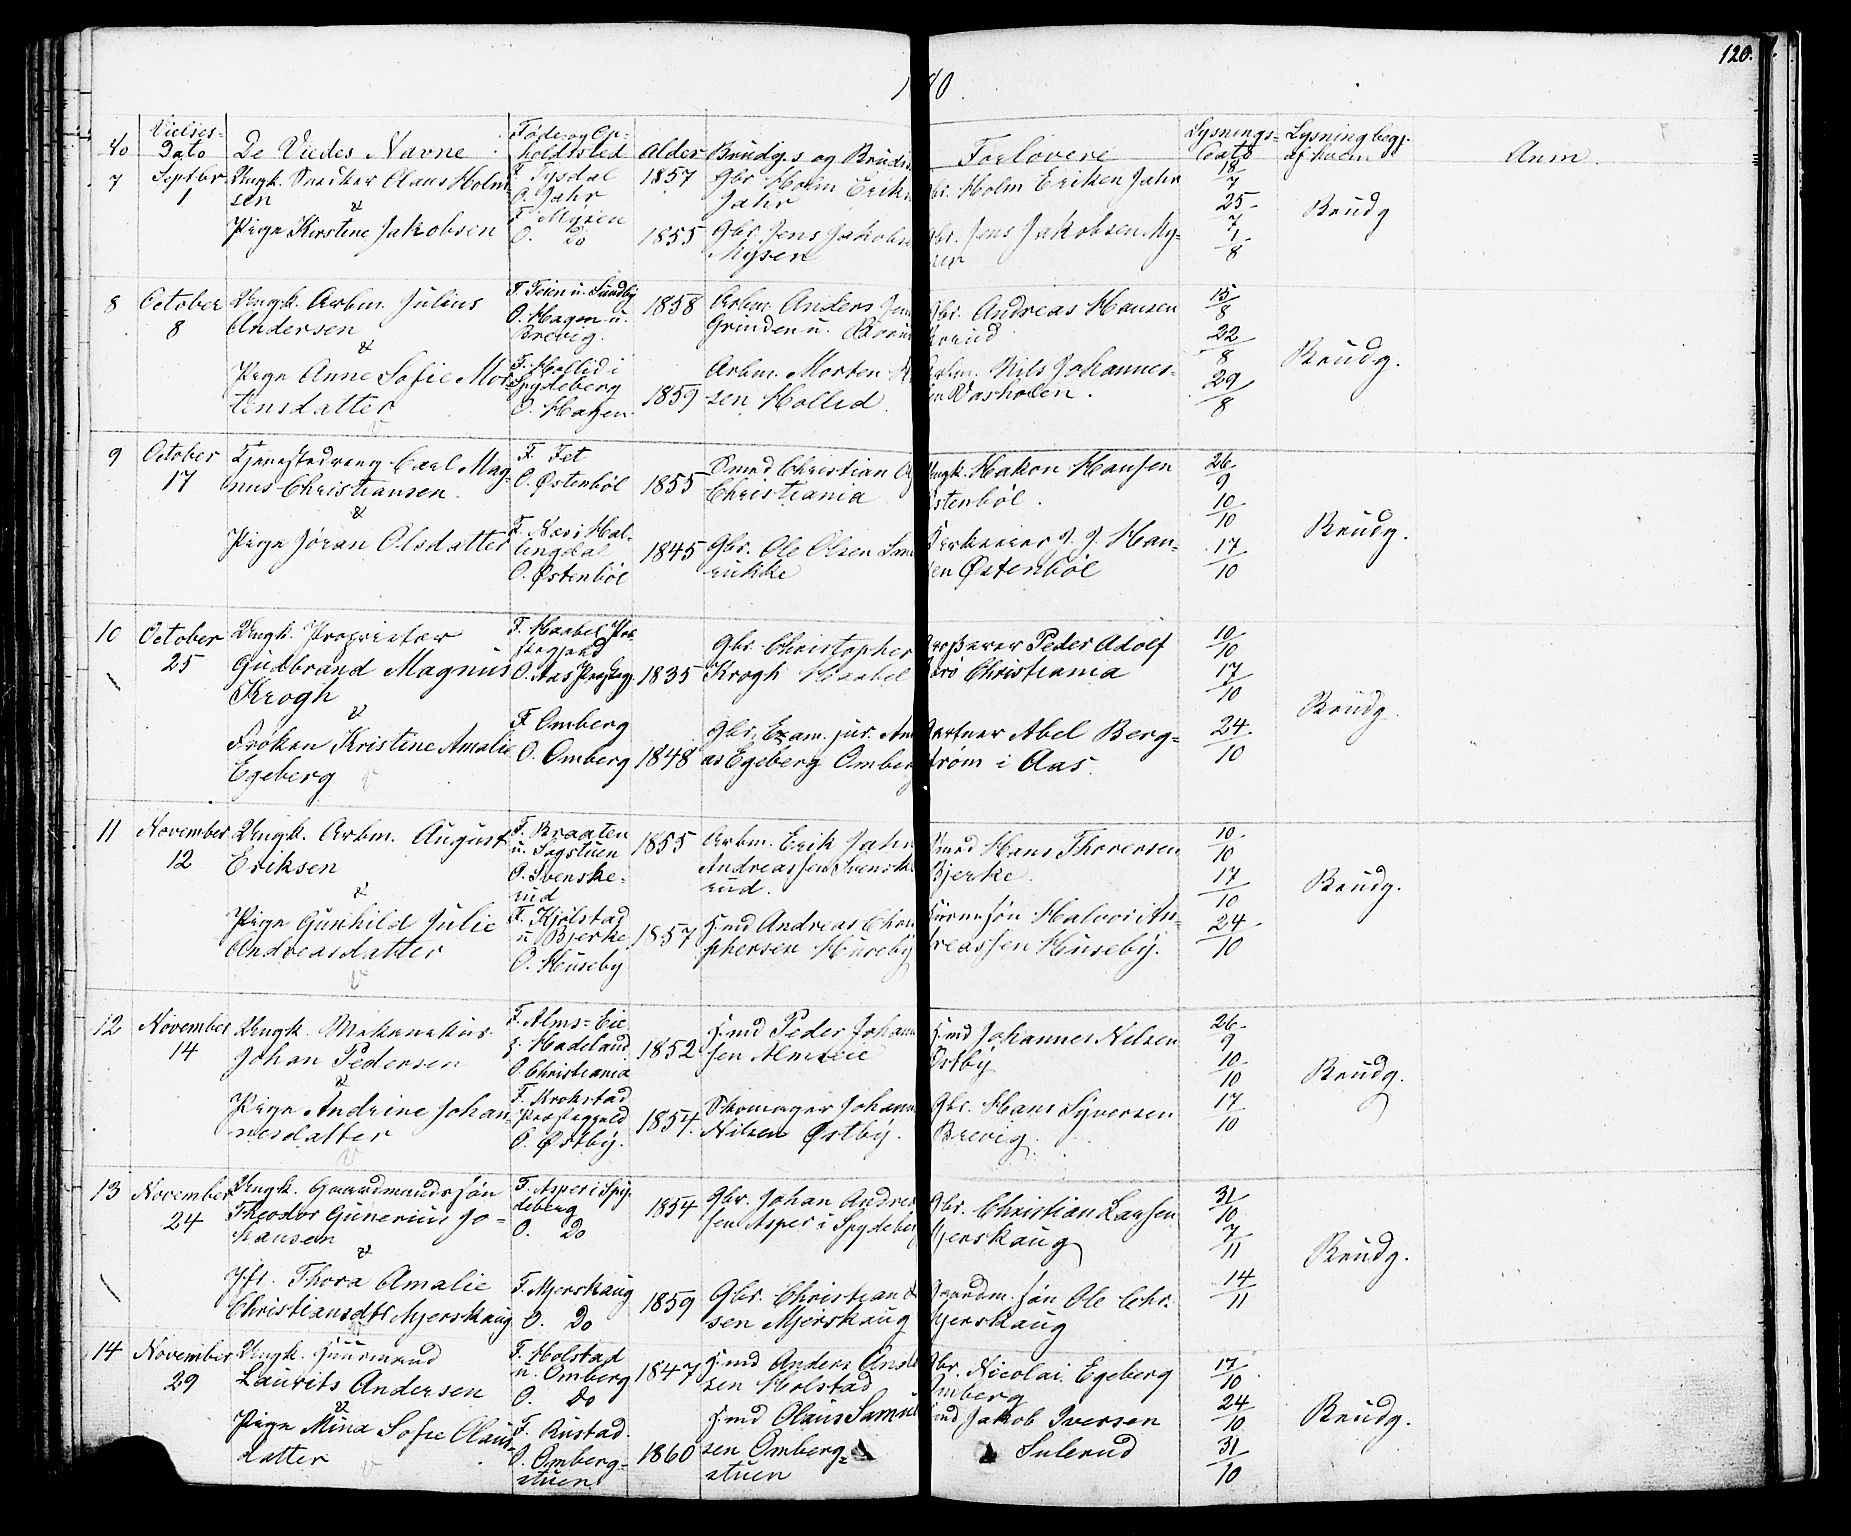 120.
1880.
No
Vielses-
Dato
De Viedes Navne
Føde og Op-
holdssted
Alder
Brudg.s og Bruds
Forlovere
Lysnings-
Dato
Lysning begj.
af hvem
Anm.
7
Septbr
1
Ungk. Snedker Olaus Holm-
sen
&
Pige Kirstine Jakobsen
F. Tysdal
O. Jahr
F. Mysen
O. Do
1857
1855
Gbr. Holm Erik
Jahr
Gbr. Jens Jakobse
Mysen
Gbr. Holm Eriken Jahr
Gbr. Jens Jakobsen My-
sen
18/7
25/7
1/8
Brudg
8
October
8
Ungk. Arbm. Julius
Andersen
&
Pige Anne Sofie Mor-
tensdatter
F. Teien u. Sundby
O. Hagen u.
Brevig.
F. Hollid i
Spydeberg
O. Hagen
1858
1859
Arbm. Anders Jen
Grinden u.
Arbm. Morten
sen Hollid.
Gbr. Andreas Hansen
Arbm. Nils Johannes-
sen Vasholen.
15/8
22/8
29/8
Brudg.
9
October
17
Tjenestedreng Carl Mag-
nus Christiansen.
&
Pige Jöran Olsdatter
F. Fet
O. Østenböl
F. Næs i Hal-
lingdal
O. Østenböl
1855
1845
Smed Christian
Christiania
Gbr. Ole Olsen
rukke
Ungk. Hakon Hansen
Østenböl.
Kirkeeier J. J. Han-
sen Østenböl
26/9
10/10
17/10
Brudg.
10
October
25
Ungk. Proprietær
Gudbrand Magnus
Krogh
&
Frøken Kristine Amalie
Egeberg
F. Haabel Præ-
stegjeld
O. Aas Præstegj.
F. Omberg
O. Omberg
1835
1848
Gbr. Christopher
Krogh Haabel
Gbr. Exam. jur. An
as Egeberg Omberg
Grosserer Peder Adolf
Christiania
Gartner Abel Berg-
strøm i Aas.
10/10
17/10
24/10
Brudg.
11
November
12
Ungk. Arbm. August
Eriksen
&
Pige Gunhild Julie
Andreasdatter
F. Braaten
u. Sagstuen
O. Svenske-
rud
F. Kjölstad
u. Bjerke
O. Huseby
1855
1857
Arbm. Erik Jahn
Andreassen Svenske
rud.
H.md Andreas Chri
phersen Huseby
Smed Hans Thoresen
Bjerke.
Halvor An-
dreassen Huseby.
10/10
17/10
24/10
Brudg.
12
November
14
Ungk. Mekanikus
Johan Pedersen
&
Pige Andrine Johan-
nesdatter
F. Alms-Eie
p. Hadeland
O. Christiania
F. Krokstad
Præstegjeld
O. Østby.
1852
1854.
H.md Peder Johann
sen Almseie
Skomager Johann
Nilsen Østby.
H.md Johannes Nilsen
Østby
Gbr. Hans Syversen
Brevig.
26/9
10/10
17/10
Brudg.
13
November
24
Ungk. Gaardmandssøn
Theodor Gunerius Jo-
hansen
&
Jfr. Thora Amalie
Christiansdtr Mjerskaug
F. Asper i Spy-
deberg
O. Do
F. Mjerskaug
O. Do
1854
1859
Gbr. Johan Andrea
sen Asper i Spydeber
Gbr. Christian
sen Mjerskaug
Gbr. Christian Larsen
Mjerskaug
Gaardm. søn Ole Chr.
Mjerskaug
31/10
7/11
14/11
Brudg.
14
November
29
Ungk. Huusmand
Laurits Andersen
&
Pige Mina Sofie Olaus-
datter
F. Holstad
u. Omberg
O. Do
F. Rustad.
O. Omberg-
stuen
1847
1860
H.md Anders
sen Holstad
H.md Olaus Samuel
sen Omberg-
stuen
Gbr. Nicolai Egeberg
Omberg
H.md Jakob Iversen
Sulerud
17/10
24/10
31/10
Brudg.